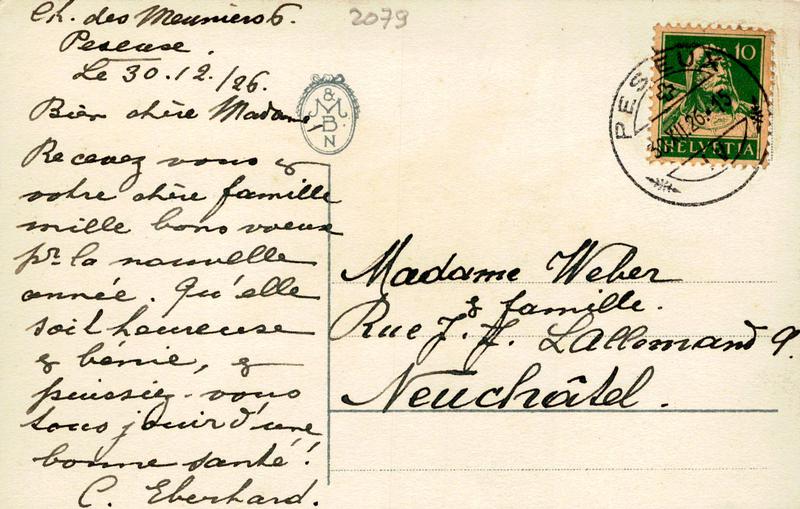 Ch. des Meuniers 6.
Peseux.
Le 30.12./26.
Bien chère Madame,
Recevez vous &
votre chère famille
mille bons voeux
pr. la nouvelle
année. Qu'elle
soit heureuse
& bénie, &
puissiez-vous
tous jouir d'une
bonne santé!
C. Eberhard.
2079
&
M
B
N
10
HELVETIA
PESEUX
30.XII.26.-15
Madame Weber
& famille.
Rue J. J. Lallemand 9.
Neuchâtel.